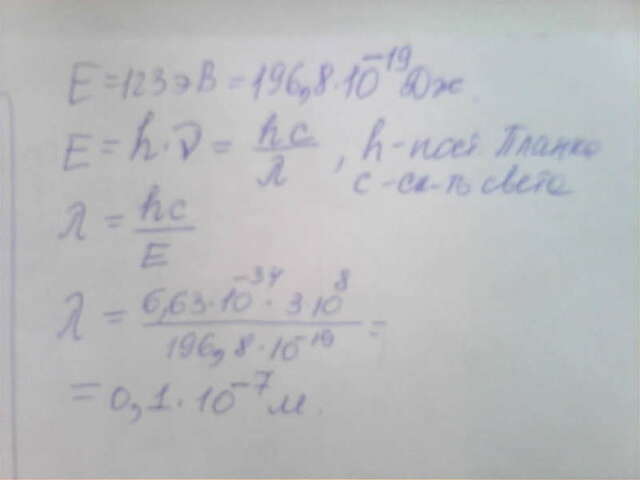 E = 123 эВ = 196,8·10⁻¹⁹ Дж.
E = h·ν = hc/λ, h - пост. Планка
c - ск-ть света
λ = hc/E
λ = 6,63·10⁻³⁴·3·10⁸/196,8·10⁻¹⁹ =
= 0,1·10⁻⁷ м.